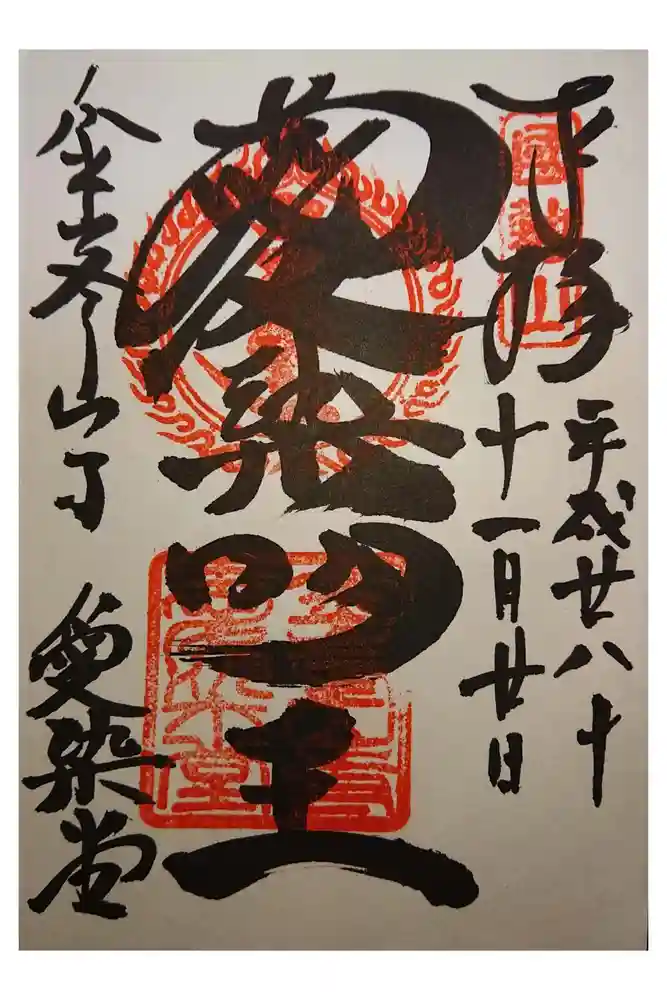 奉拝
國軸山
平成廿八年
十一月廿日
愛染明王
金峯山寺
愛染堂